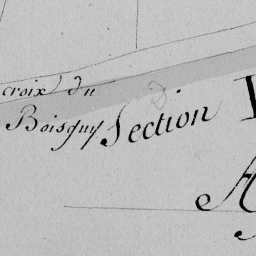 croix du
Boisguy
Section